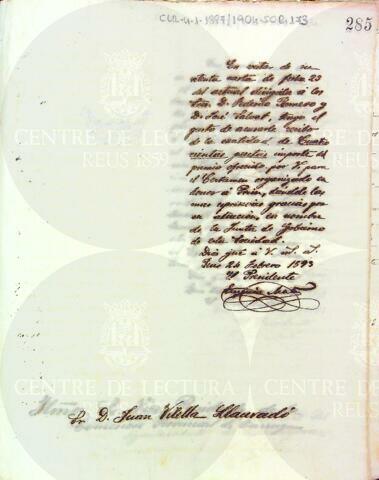 CUL-4-1-1887/1904-SOR,173
285
En vista de su
atenta carta de fecha 23
del actual dirigida á los
Sres. D. Federico Romero y
D. José Cabot, tengo el
gusto de acusarle recibo
de la cantidad de Cuatro
cientas pesetas importe del
premio ofrecido por V. para
el Certamen organizado en
honor á Prim, dándole las
mas expresivas gracias por
su atención, en nombre
de la Junta de Gobierno
de esta Sociedad.
Dios gue á V. m. a.
Reus 24 Febrero 1893
El Presidente
CENTRE DE LECTURA
REUS 1859
Sr. D. Juan Vilella Llauradó